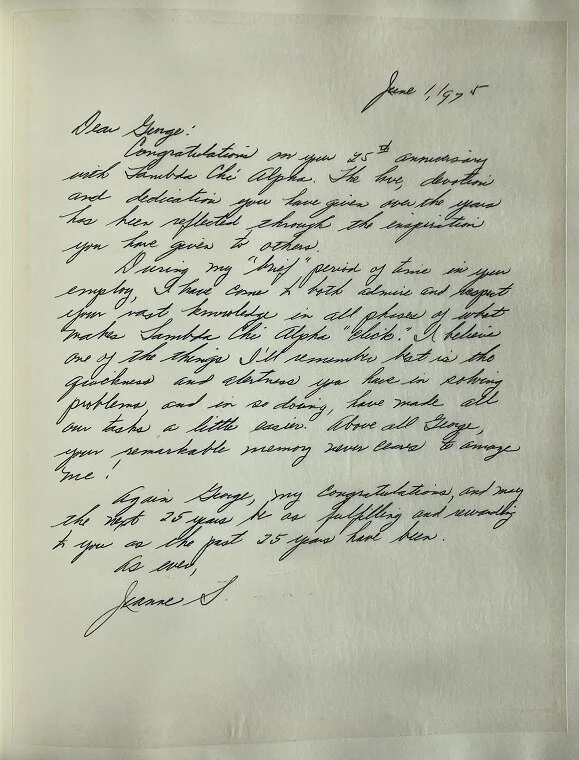 June 1, 1975
Dear George:
Congratulations on your 25th anniversary
with Lambda Chi Alpha. The love, devotion
and dedication you have given over the years
has been reflected through the inspiration
you have given to others.
During my "brief" period of time in your
employ, I have come to both admire and respect
your vast knowledge in all phases of what
makes Lambda Chi Alpha "click." I believe
one of the things I'll remember best is the
quickness and alertness you have in solving
problems, and in so doing, have made all
our tasks a little easier. Above all George,
your remarkable memory never ceases to amaze
me!
Again George, my congratulations, and may
the next 25 years be as fulfilling and rewarding
to you as the past 25 years have been.
As ever,
Jeanne S.